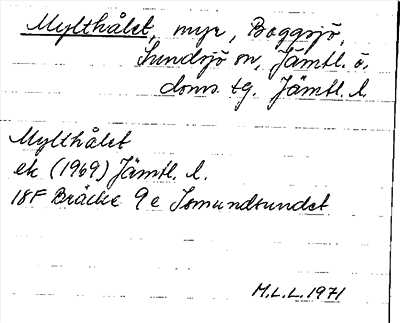 Mylthålet, myr, Boggsjö,
Sundsjö sn, Jämtl. ö.
doms. tg. Jämtl. l.
Mylthålet
ek (1969) Jämtl. l.
18F Bräcke 9e Ismundsundet
M.L.L. 1971